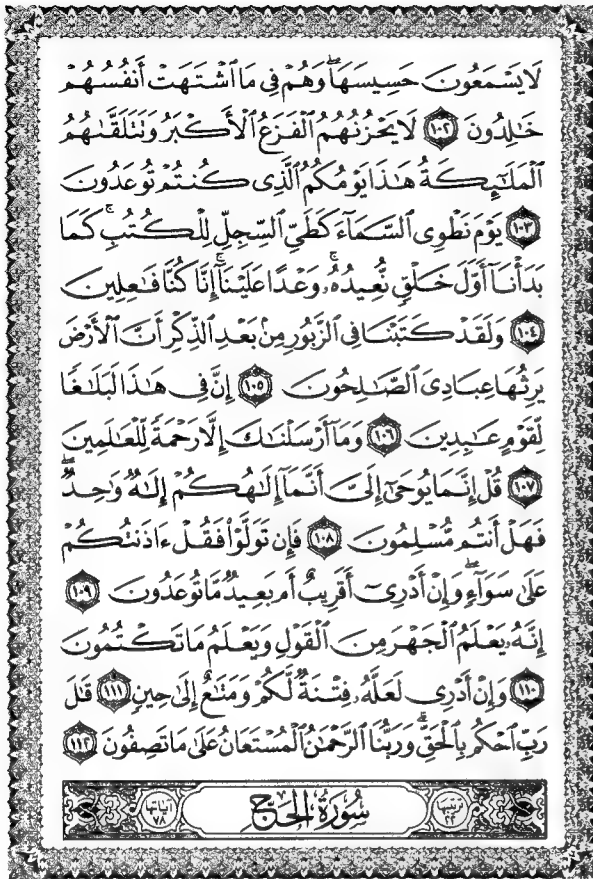 لَا يَسْمَعُونَ حَسِيسَهَا ۖ وَهُمْ فِي مَا ٱشْتَهَتْ أَنفُسُهُمْ
خَـٰلِدُونَ ١٠٢ لَا يَحْزُنُهُمُ ٱلْفَزَعُ ٱلْأَكْبَرُ وَتَتَلَقَّىٰهُمُ
ٱلْمَلَـٰٓئِكَةُ هَـٰذَا يَوْمُكُمُ ٱلَّذِى كُنتُمْ تُوعَدُونَ
١٠٣ يَوْمَ نَطْوِى ٱلسَّمَآءَ كَطَىِّ ٱلسِّجِلِّ لِلْكُتُبِ ۚ كَمَا
بَدَأْنَآ أَوَّلَ خَلْقٍ نُّعِيدُهُۥ ۚ وَعْدًا عَلَيْنَآ ۚ إِنَّا كُنَّا فَـٰعِلِينَ
١٠٤ وَلَقَدْ كَتَبْنَا فِي ٱلزَّبُورِ مِنۢ بَعْدِ ٱلذِّكْرِ أَنَّ ٱلْأَرْضَ
يَرِثُهَا عِبَادِىَ ٱلصَّـٰلِحُونَ ١٠٥ إِنَّ فِي هَـٰذَا لَبَلَـٰغًا
لِّقَوْمٍ عَـٰبِدِينَ ١٠٦ وَمَآ أَرْسَلْنَـٰكَ إِلَّا رَحْمَةً لِّلْعَـٰلَمِينَ
١٠٧ قُلْ إِنَّمَا يُوحَىٰٓ إِلَىَّ أَنَّمَآ إِلَـٰهُكُمْ إِلَـٰهٌ وَٰحِدٌ ۖ
فَهَلْ أَنتُم مُّسْلِمُونَ ١٠٨ فَإِن تَوَلَّوْا۟ فَقُلْ ءَاذَنتُكُمْ
عَلَىٰ سَوَآءٍ ۖ وَإِنْ أَدْرِىٓ أَقَرِيبٌ أَم بَعِيدٌ مَّا تُوعَدُونَ ١٠٩
إِنَّهُۥ يَعْلَمُ ٱلْجَهْرَ مِنَ ٱلْقَوْلِ وَيَعْلَمُ مَا تَكْتُمُونَ
١١٠ وَإِنْ أَدْرِى لَعَلَّهُۥ فِتْنَةٌ لَّكُمْ وَمَتَـٰعٌ إِلَىٰ حِينٍ ١١١ قَـٰلَ
رَبِّ ٱحْكُم بِٱلْحَقِّ ۗ وَرَبُّنَا ٱلرَّحْمَـٰنُ ٱلْمُسْتَعَانُ عَلَىٰ مَا تَصِفُونَ ١١٢
ترتيبها ٢٢ سُورَةُ الحَجِّ آياتها ٧٨